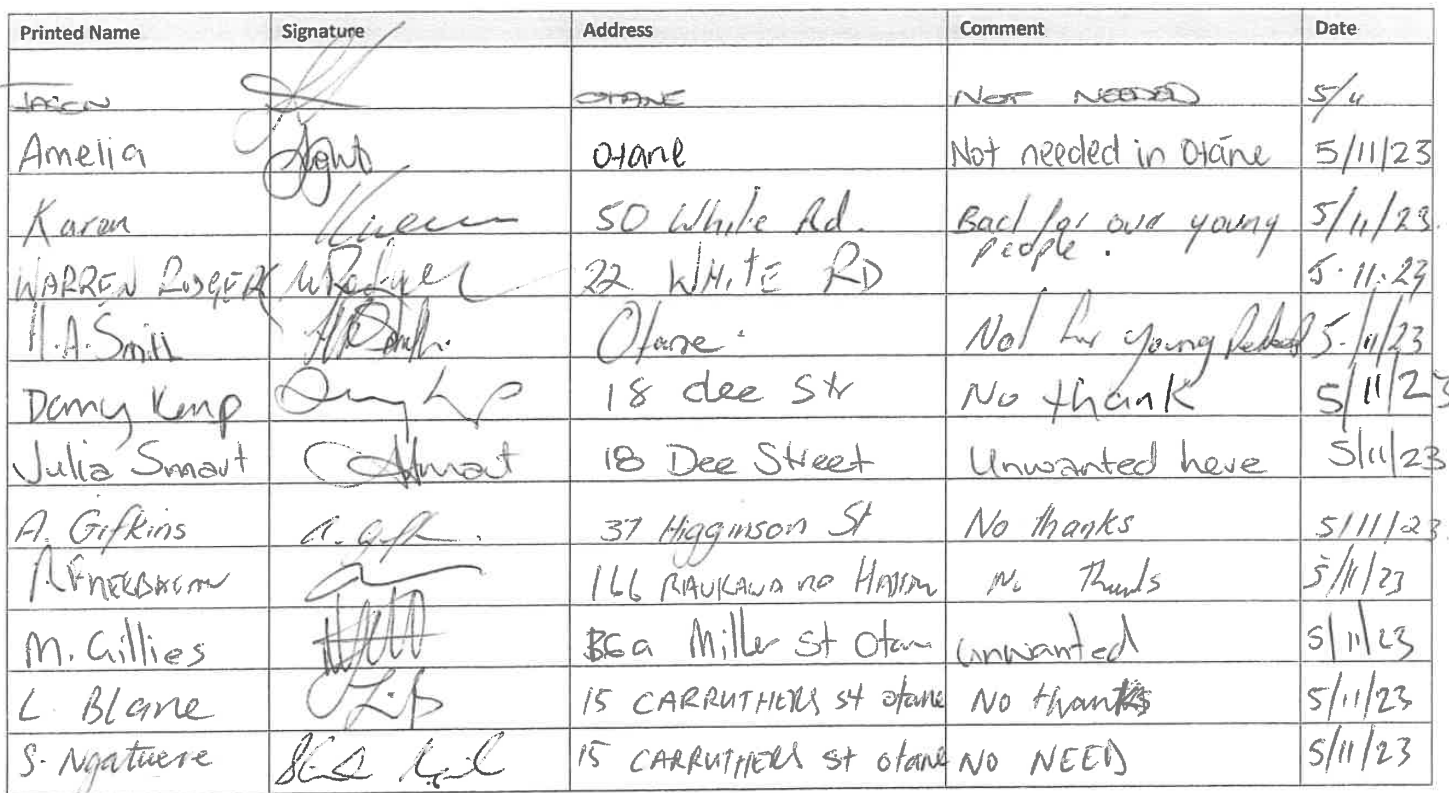 Printed Name Signature Address Comment Date
JASON OTANE NOT NEEDED 5/11
Amelia Otane Not needed in Otāne 5/11/23
Karen 50 White Rd. Bad for our young people. 5/11/23.
WARREN RODGER WRodger 22 WHITE RD 5.11.23
H.A. Smith HASmith. Otane. Not for young 5/11/23
Danny Kemp 18 dee Str No thank 5/11/23
Julia Smart Smart 18 Dee Street Unwanted here 5/11/23
A. Gifkins 37 Higginson St No thanks 5/11/23.
166 RAUKAWA RD No Thanks 5/11/23
M. Gillies 36a Miller St Otane Unwanted 5/11/23
L. Blane 15 CARRUTHERS St otane No thanks 5/11/23
S. Ngatuere 15 CARRUTHERS St otane NO NEED 5/11/23